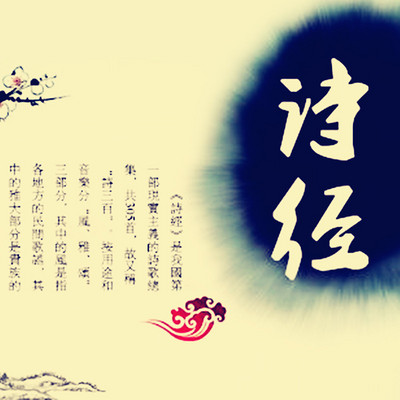 诗经
《詩經》是我國第
一部現實主義的詩歌總
集，共305首，故又稱
“詩三百”。按用途和
音樂分“風、雅、頌”
三部分，其中的風是指
各地方的民間歌謠，其
中的雅大部分是貴族的